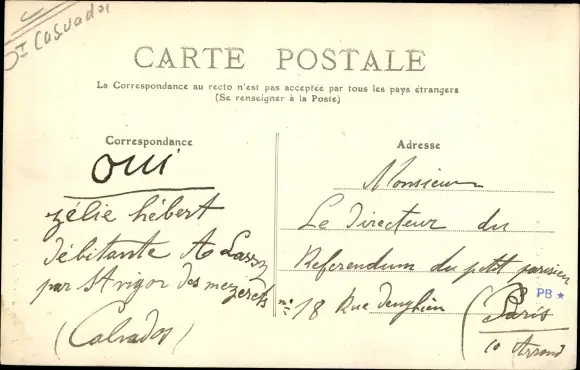 Dt Calvados
CARTE POSTALE
La Correspondance au recto n'est pas acceptée par tous les pays étrangers
(Se renseigner à la Poste)
Correspondance
oui
zélie hébert
débitante A Lassy
par St vigor des mezerets
(Calvados)
Adresse
Monsieur
Le Directeur du
Referendum du ptit parisien
n° 18 Rue denghien (Paris
10 Arrond
PB ★